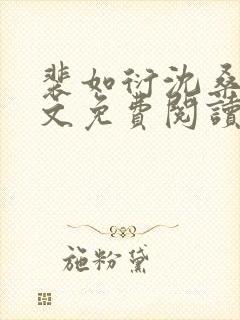 裴如衍沈桑
文免費閱讀
施粉黛